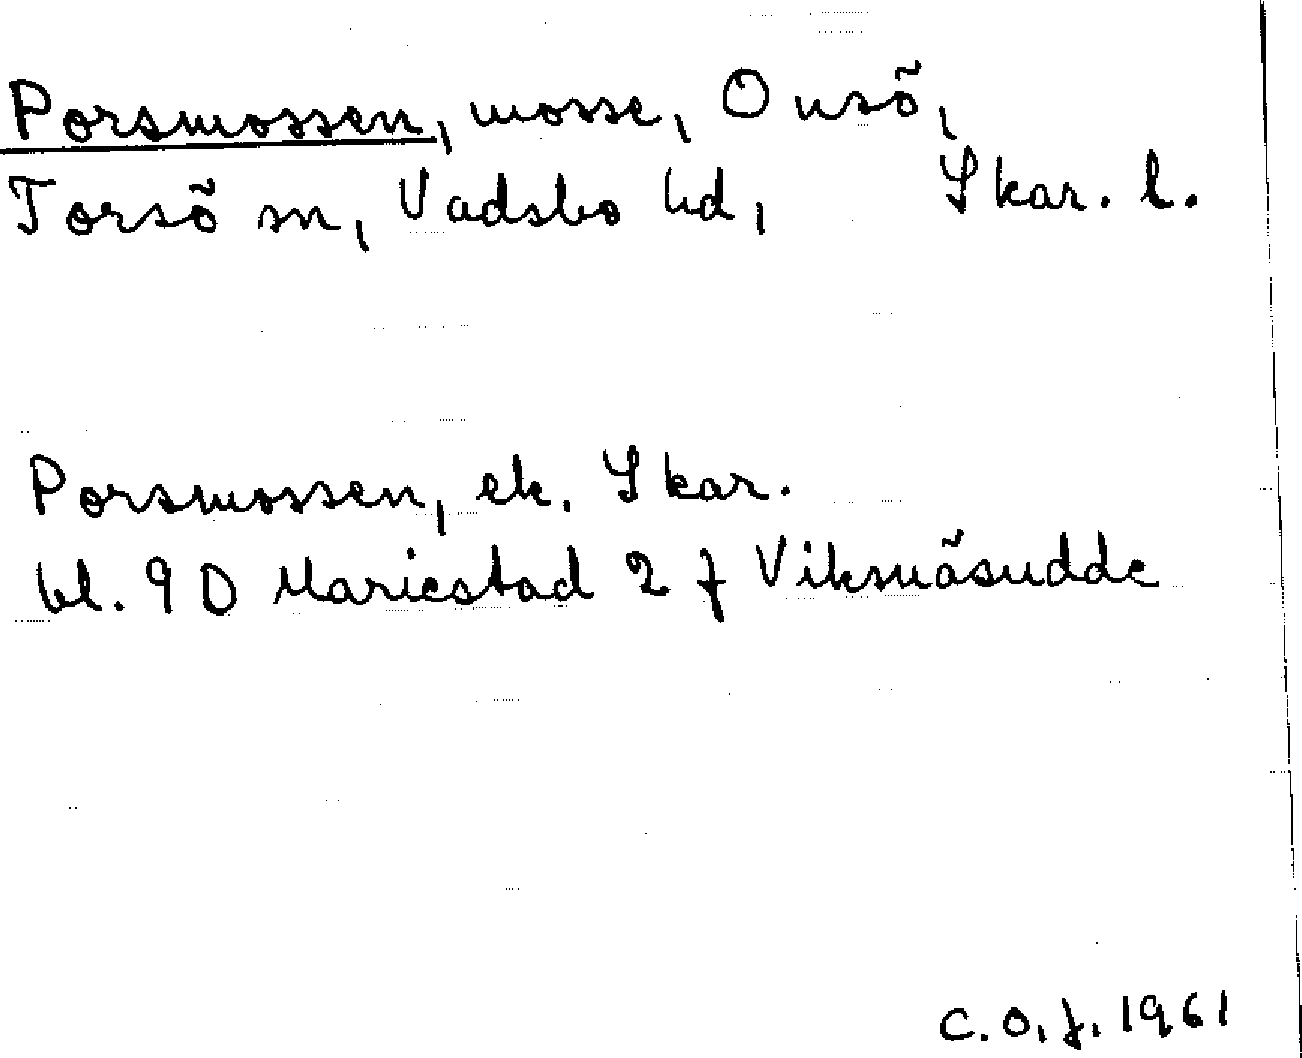 Porsmossen, mosse, Onsö,
Torsö sn, Vadsbo hd, Skar. l.
Porsmossen, ek. Skar.
bl. 9D Mariestad 2 f Viksnäsudde
C.O.f. 1961